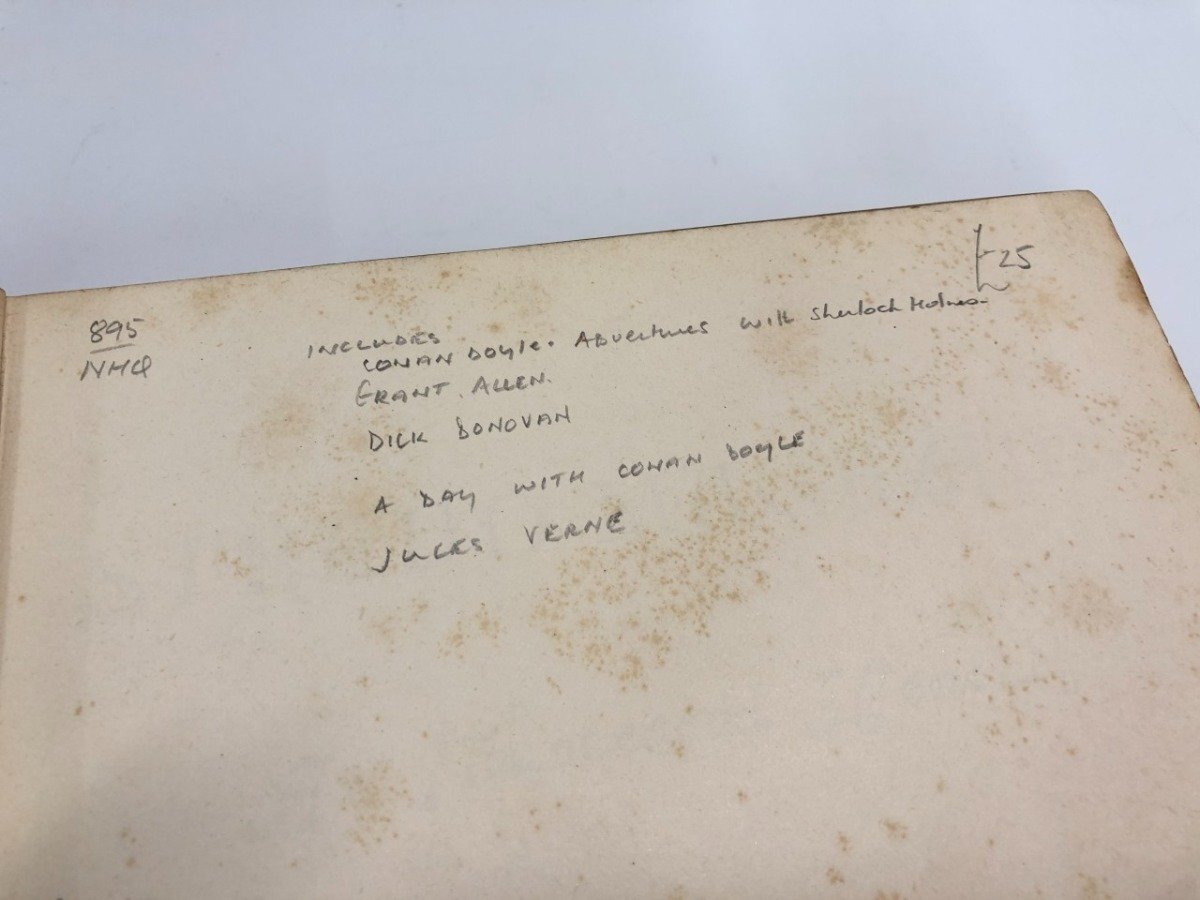 £25
895
NHQ
INCLUDES
CONAN DOYLE. ADVENTURES with Sherlock Holmes.
GRANT ALLEN.
DICK DONOVAN
A DAY WITH CONAN DOYLE
JULES VERNE